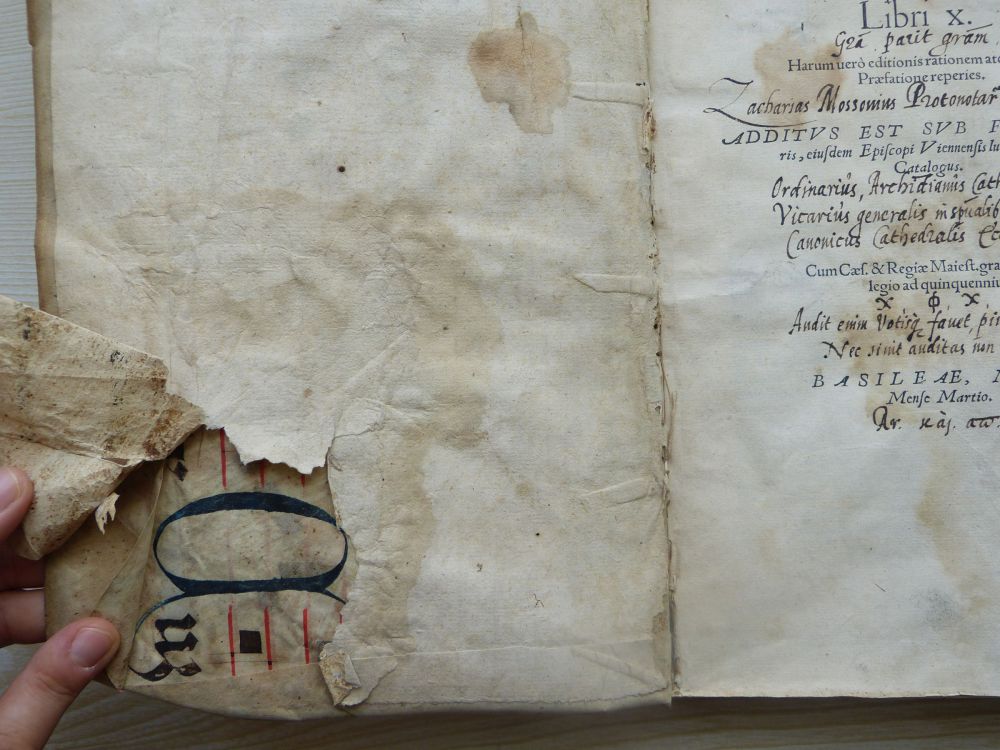 Libri X.
Gřa parit grām
Harum uerò editionis rationem at
Præfatione reperies.
Zacharias Mossouius Protonotar
ADDITVS EST SVB F
ris, eiusdem Episcopi Viennensis Iu
Catalogus.
Ordinarius, Archidianus Cath
Vicarius generalis in spualib
Canonicus Cathedralis
Cum Cæs. & Regiæ Maiest. gra
legio ad quinquenniu
χ φ χ
Audit enim votisq favet,
Nec sinit auditas non
BASILEAE, M
Mense Martio.
Q
u